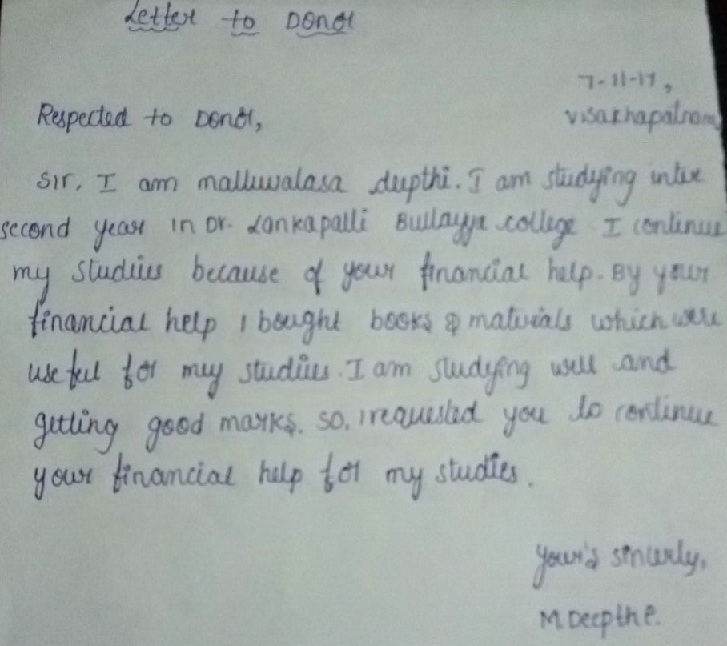 Letter to Donor
7-11-17,
Respected to Donor,
Visakhapatnam
Sir, I am malluwalasa deepthi. I am studying inter
second year in Dr. Lankapalli Bullayya college. I continue
my studies because of your financial help. By your
financial help I bought books & materials which were
useful for my studies. I am studying well and
getting good marks. So, I requested you to continue
your financial help for my studies.
Your's sincerly,
M. Deepthi.